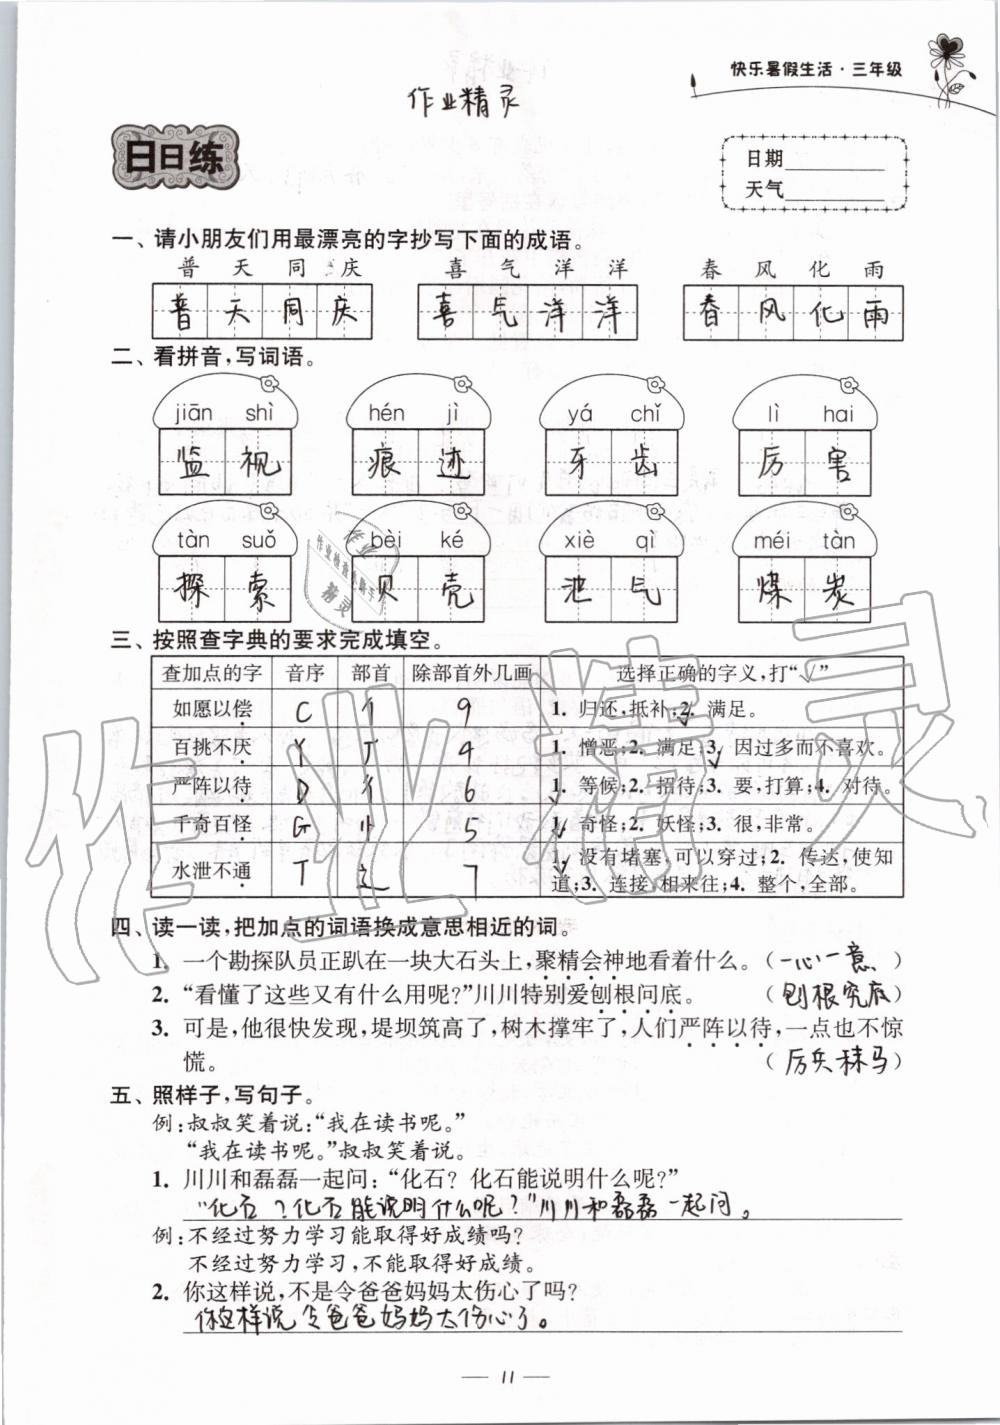 快乐暑假生活·三年级
作业精灵
日日练
日期
天气
一、请小朋友们用最漂亮的字抄写下面的成语。
普 天 同 庆 喜 气 洋 洋 春 风 化 雨
普 天 同 庆 喜 气 洋 洋 春 风 化 雨
二、看拼音,写词语。
jiān shì hén jì yá chǐ lì hai
监 视 痕 迹 牙 齿 厉 害
tàn suǒ bèi ké xiè qì méi tàn
探 索 贝 壳 泄 气 煤 炭
三、按照查字典的要求完成填空。
查加点的字 音序 部首 除部首外几画 选择正确的字义,打“√”
如愿以偿 C 亻 9 1. 归还,抵补;2. 满足。
百挑不厌 Y 厂 4 1. 憎恶;2. 满足;3. 因过多而不喜欢。
严阵以待 D 彳 6 1. 等候;2. 招待;3. 要,打算;4. 对待。
千奇百怪 G 忄 5 1. 奇怪;2. 妖怪;3. 很,非常。
水泄不通 T 辶 7 1. 没有堵塞,可以穿过;2. 传达,使知
道;3. 连接,相来往;4. 整个,全部。
四、读一读,把加点的词语换成意思相近的词。
1. 一个勘探队员正趴在一块大石头上,聚精会神地看着什么。(一心一意)
2. “看懂了这些又有什么用呢?”川川特别爱刨根问底。(刨根究底)
3. 可是,他很快发现,堤坝筑高了,树木撑牢了,人们严阵以待,一点也不惊
慌。(厉兵秣马)
五、照样子,写句子。
例:叔叔笑着说:“我在读书呢。”
“我在读书呢。”叔叔笑着说。
1. 川川和磊磊一起问:“化石?化石能说明什么呢?”
“化石?化石能说明什么呢?”川川和磊磊一起问。
例:不经过努力学习能取得好成绩吗?
不经过努力学习,不能取得好成绩。
2. 你这样说,不是令爸爸妈妈太伤心了吗?
你这样说令爸爸妈妈太伤心了。
— 11 —
作业精灵
作业
作业检查小助手
精灵